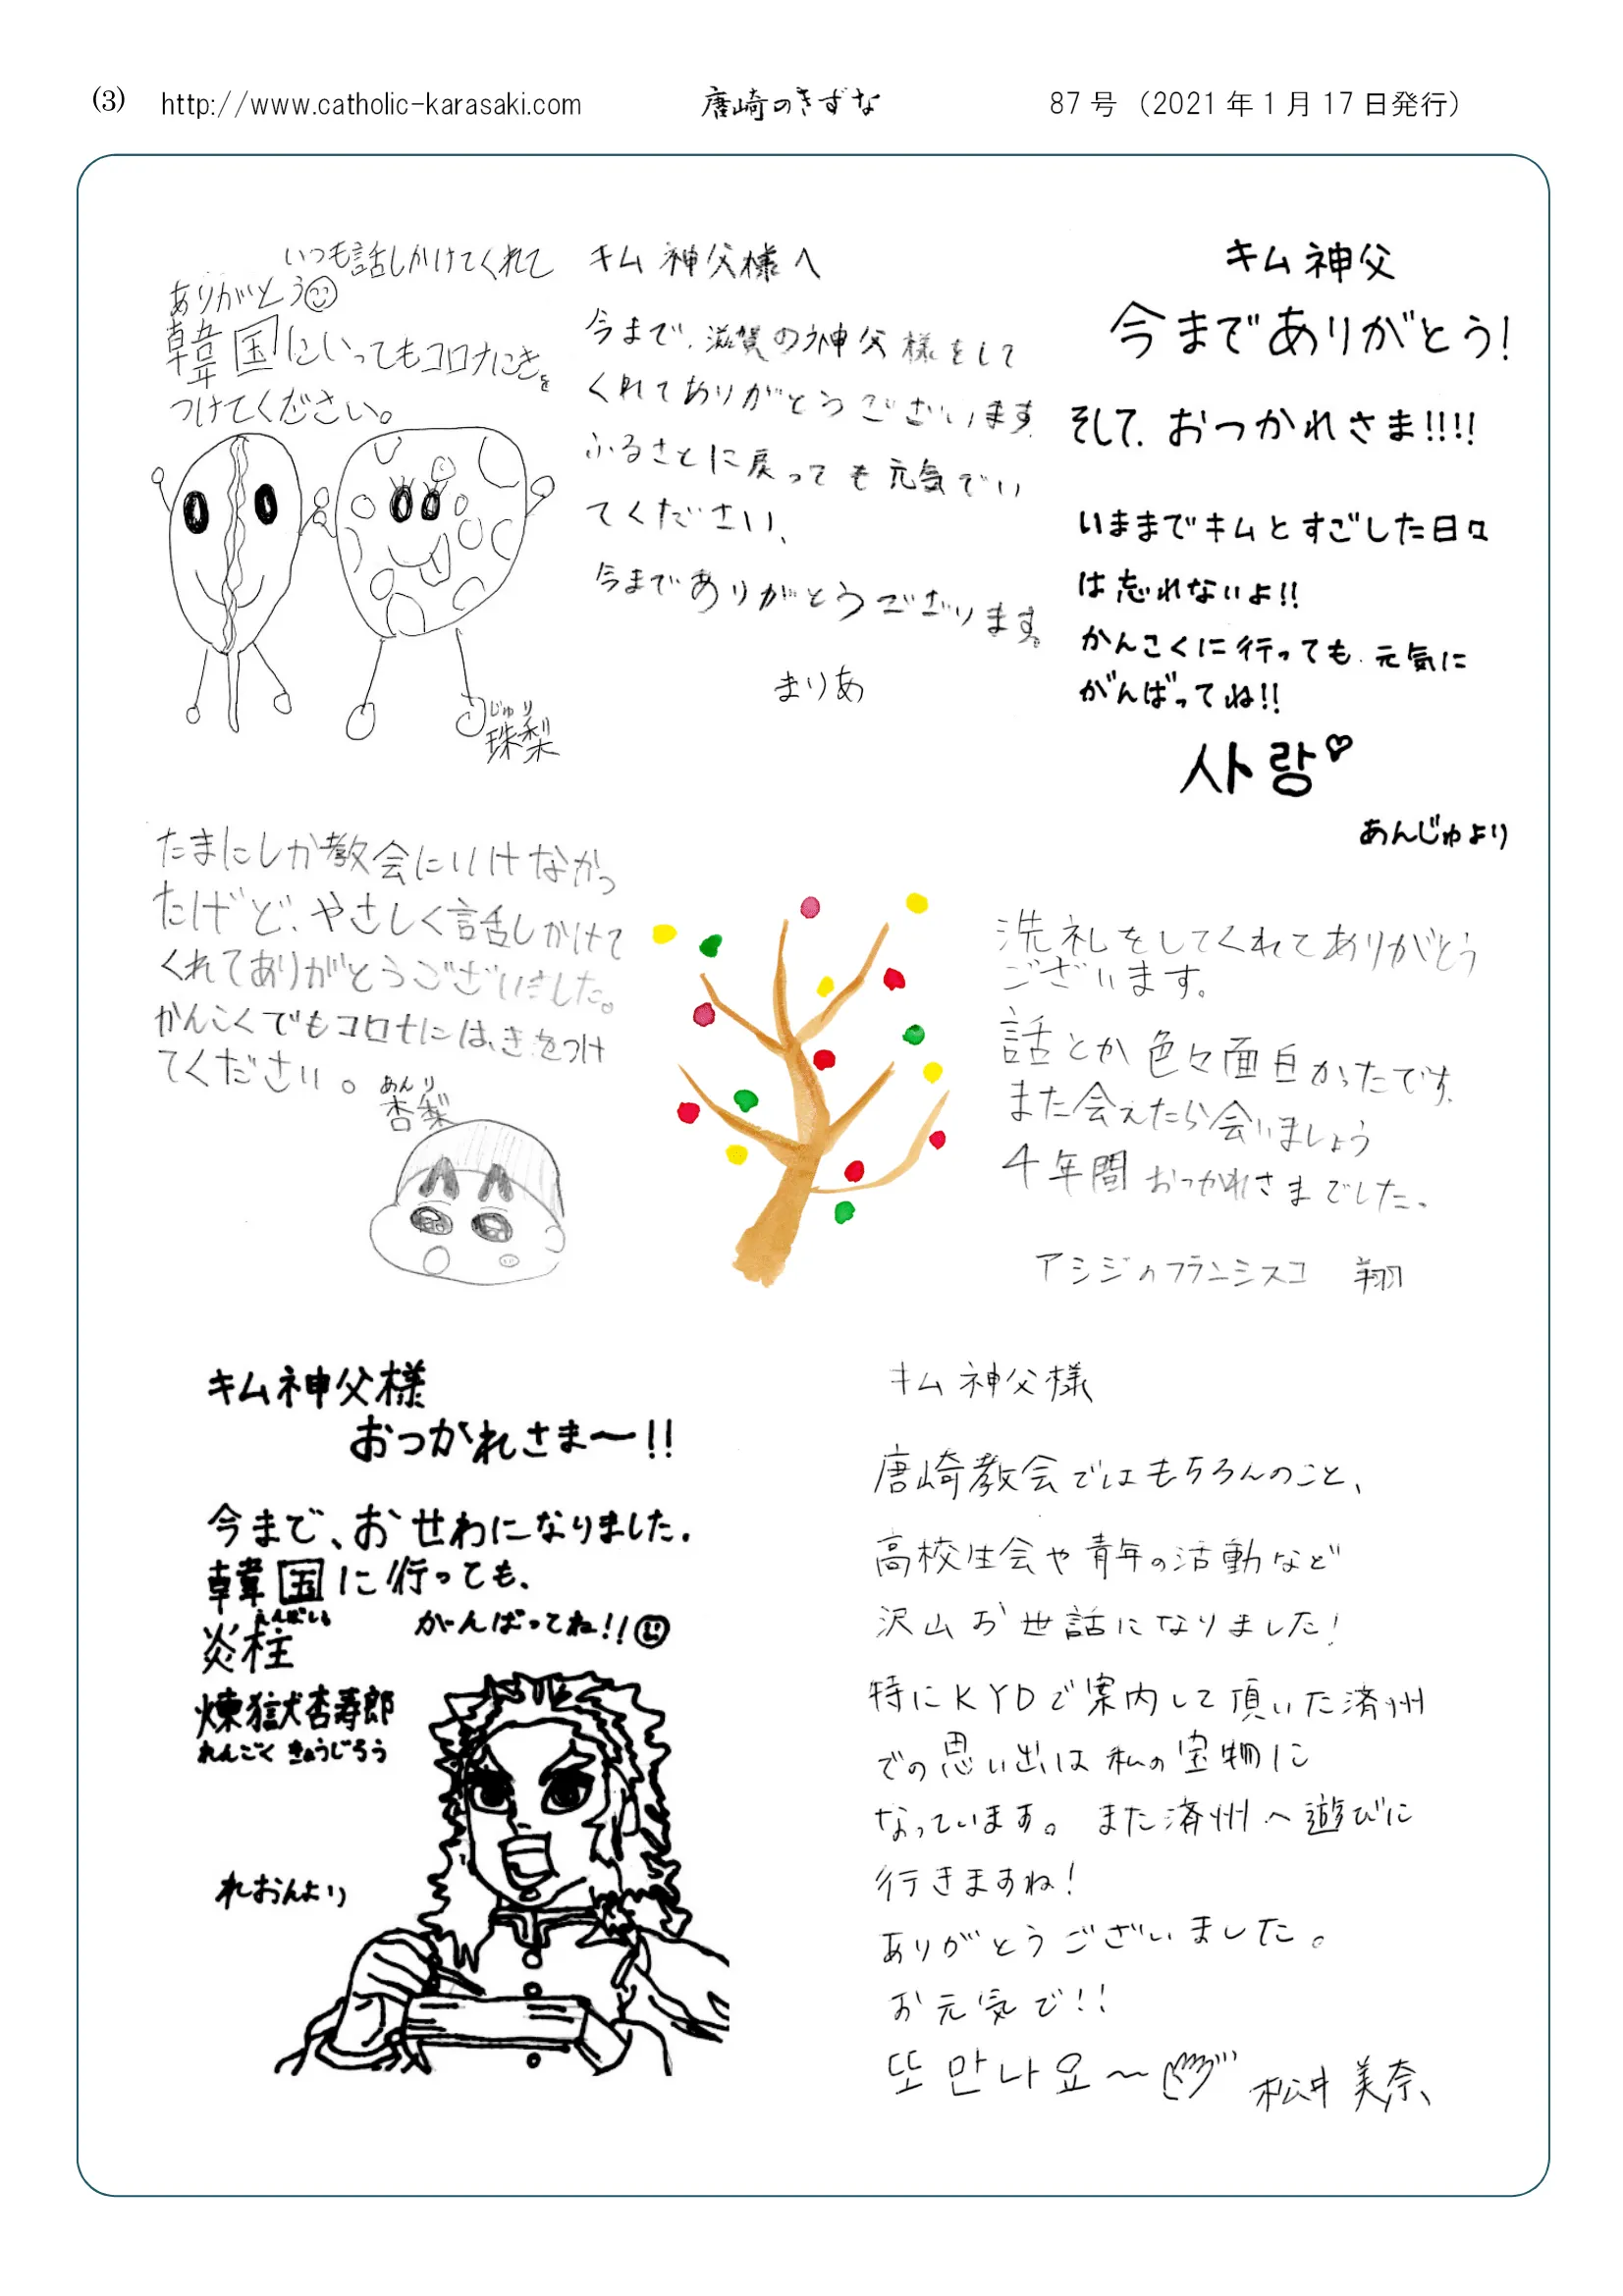 (3) http://www.catholic-karasaki.com 唐崎のきずな 87号（2021年1月17日発行）
いつも話しかけてくれて
ありがとう
韓国にいってもコロナにきを
つけてください。
じゅり
珠梨
キム神父様へ
今まで、滋賀の神父様をして
くれてありがとうございます。
ふるさとに戻っても元気でい
てください、
今までありがとうございます。
まりあ
キム神父
今までありがとう!
そして、おつかれさま!!!!
いままでキムとすごした日々
は忘れないよ!!
かんこくに行っても、元気に
がんばってね!!
사랑♡
あんじゅより
たまにしか教会にいけなかっ
たけど、やさしく話しかけて
くれてありがとうございました。
かんこくでもコロナには、きをつけ
てください。
あんり
杏梨
洗礼をしてくれてありがとう
ございます。
話とか色々面白かったです。
また会えたら会いましょう
4年間おつかれさまでした。
アシジのフランシスコ 翔
キム神父様
おつかれさま〜!!
今まで、おせわになりました。
韓国に行っても、
がんばってね!!
えんばしら
炎柱
煉獄杏寿郎
れんごく きょうじろう
れおんより
キム神父様
唐崎教会ではもちろんのこと、
高校生会や青年の活動など
沢山お世話になりました!
特にKYDで案内して頂いた済州
での思い出は私の宝物に
なっています。また済州へ遊びに
行きますね!
ありがとうございました。
お元気で!!
또 만나요〜 松井 美奈